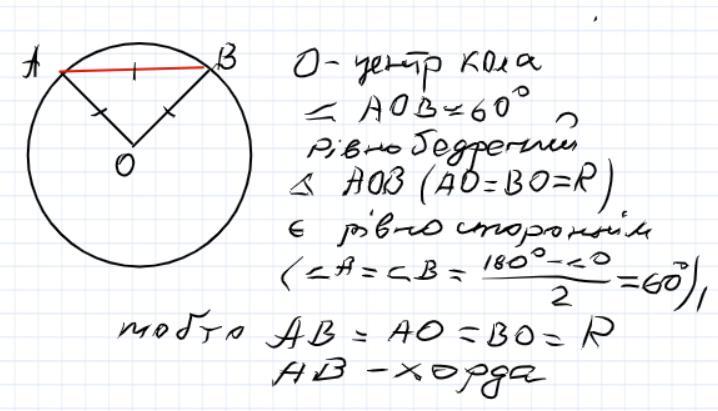 A
B
O
O - центр кола
∠ AOB = 60°
рівнобедрений
Δ AOB (AO = BO = R)
є рівностороннім
(∠A = ∠B = \frac{180° - ∠O}{2} = 60°),
тобто AB = AO = BO = R
AB - хорда